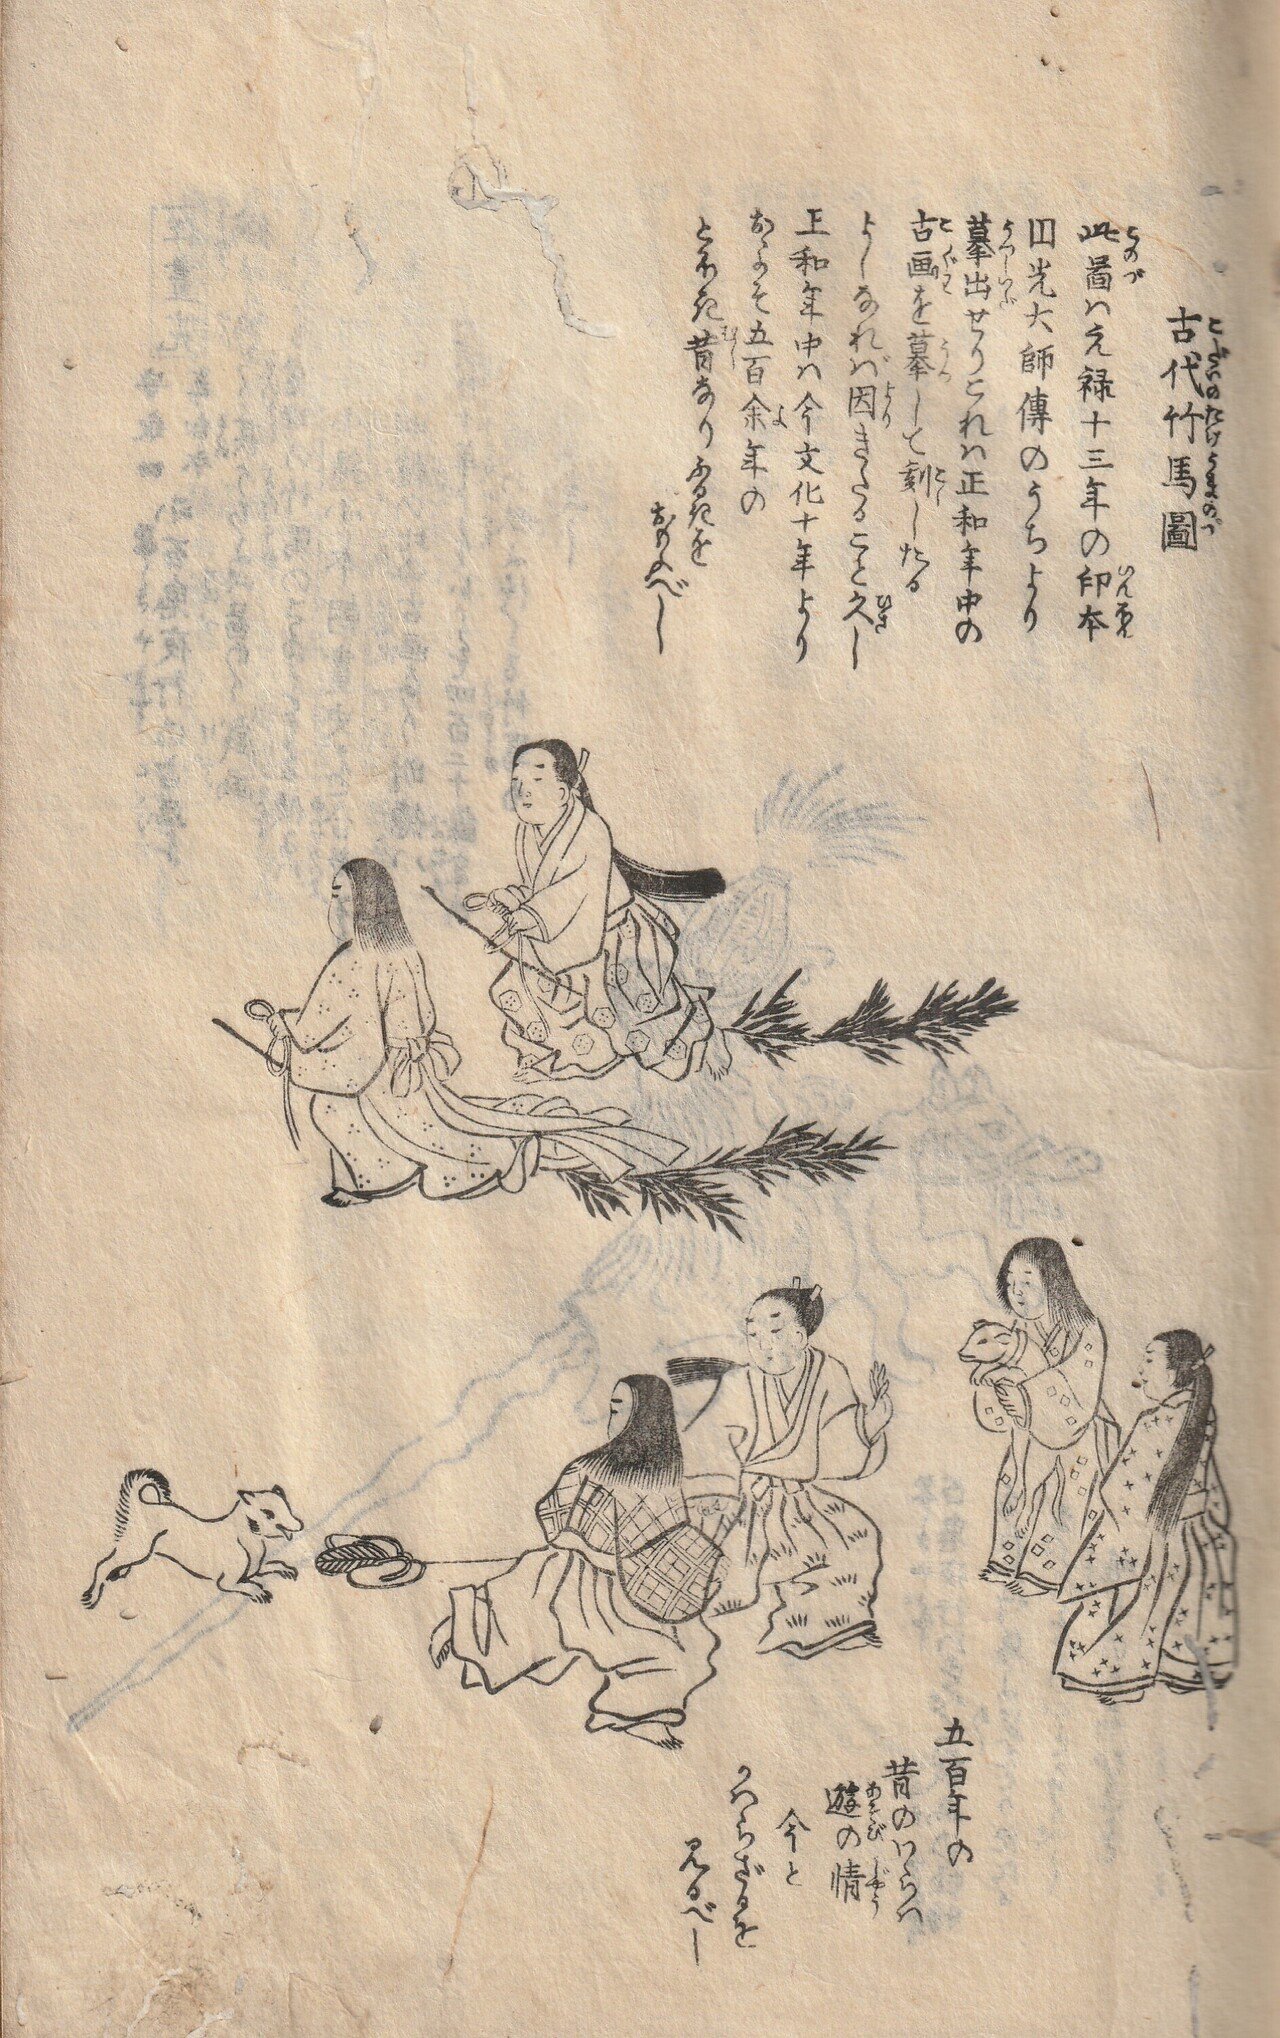 古代竹馬圖
此圖ハ元禄十三年の印本
円光大師傳のうちより
摹出せりこれハ正和年中の
古画を摹して刻したる
よしなれバ因きたること久し
正和年中ハ今文化十年より
およそ五百余年の
とほき昔なりふるきを
おもふべし
五百年の
昔のわらハ
遊の情
今と
かハらざるを
見るべし